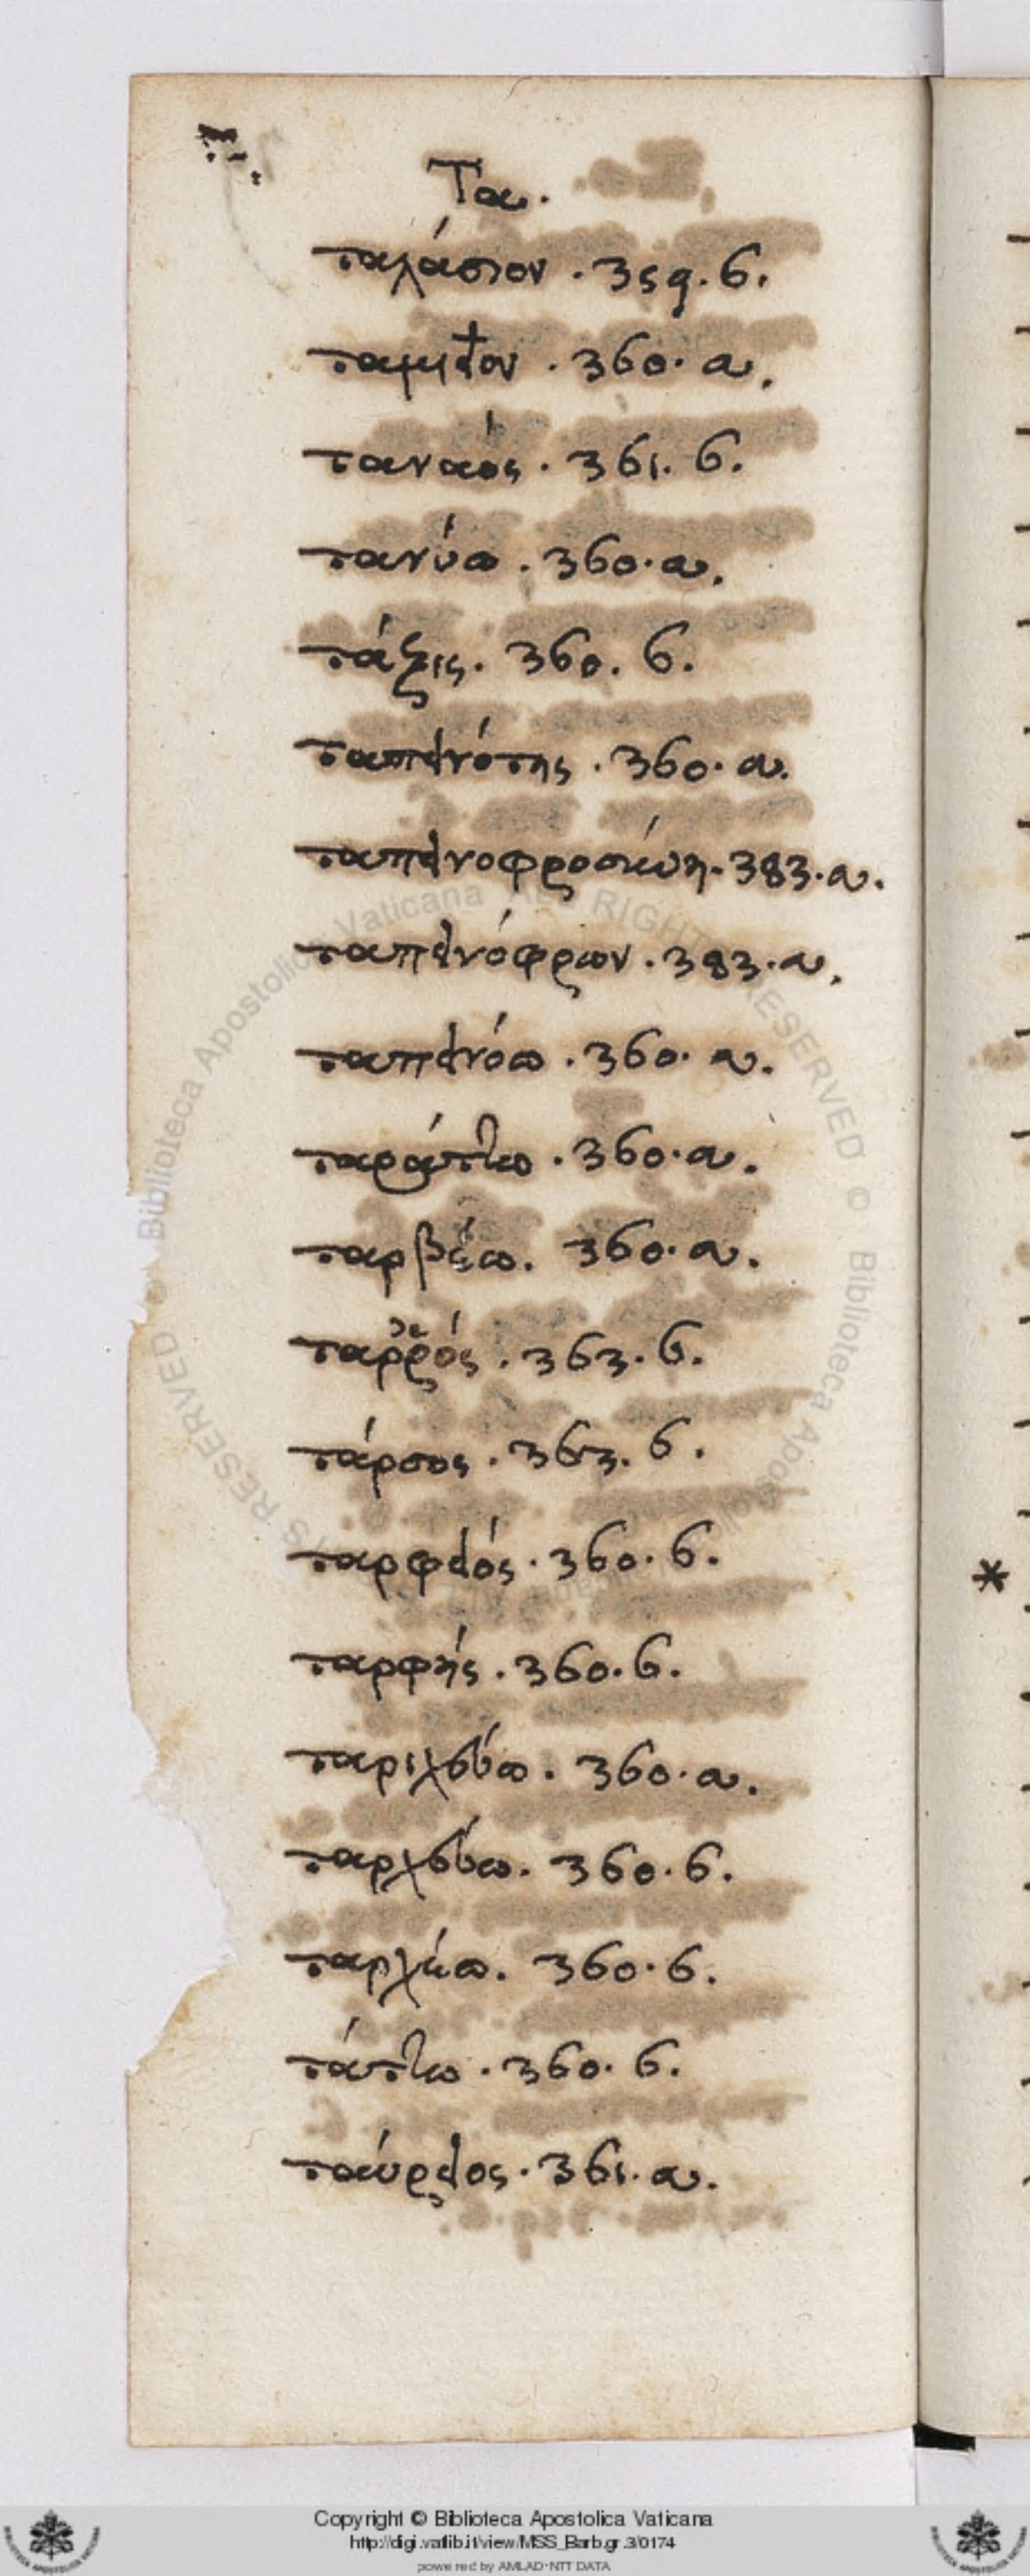 Τα.
ταλάσιον . 359. β.
ταμεῖον . 360. α.
ταναός . 361. β.
τανύω . 360. α.
τάξις . 360. β.
ταπεινότης . 360. α.
ταπεινοφροσύνη . 383. α.
ταπεινόφρων . 383. α.
ταπεινόω . 360. α.
ταράττω . 360. α.
ταρβέω . 360. α.
ταῤῥός . 363. β.
τάρσος . 363. β.
ταρφειός . 360. β.
ταρφής . 360. β.
ταριχεύω . 360. α.
ταρχεύω . 360. β.
ταρχύω . 360. β.
τάττω . 360. β.
ταύρειος . 361. α.
*
Biblioteca Apostolica Vaticana ALL RIGHTS RESERVED ©
Copyright © Biblioteca Apostolica Vaticana
http://digi.vatlib.it/view/MSS_Barb.gr.3/0174
powered by AMLAD·NTT DATA